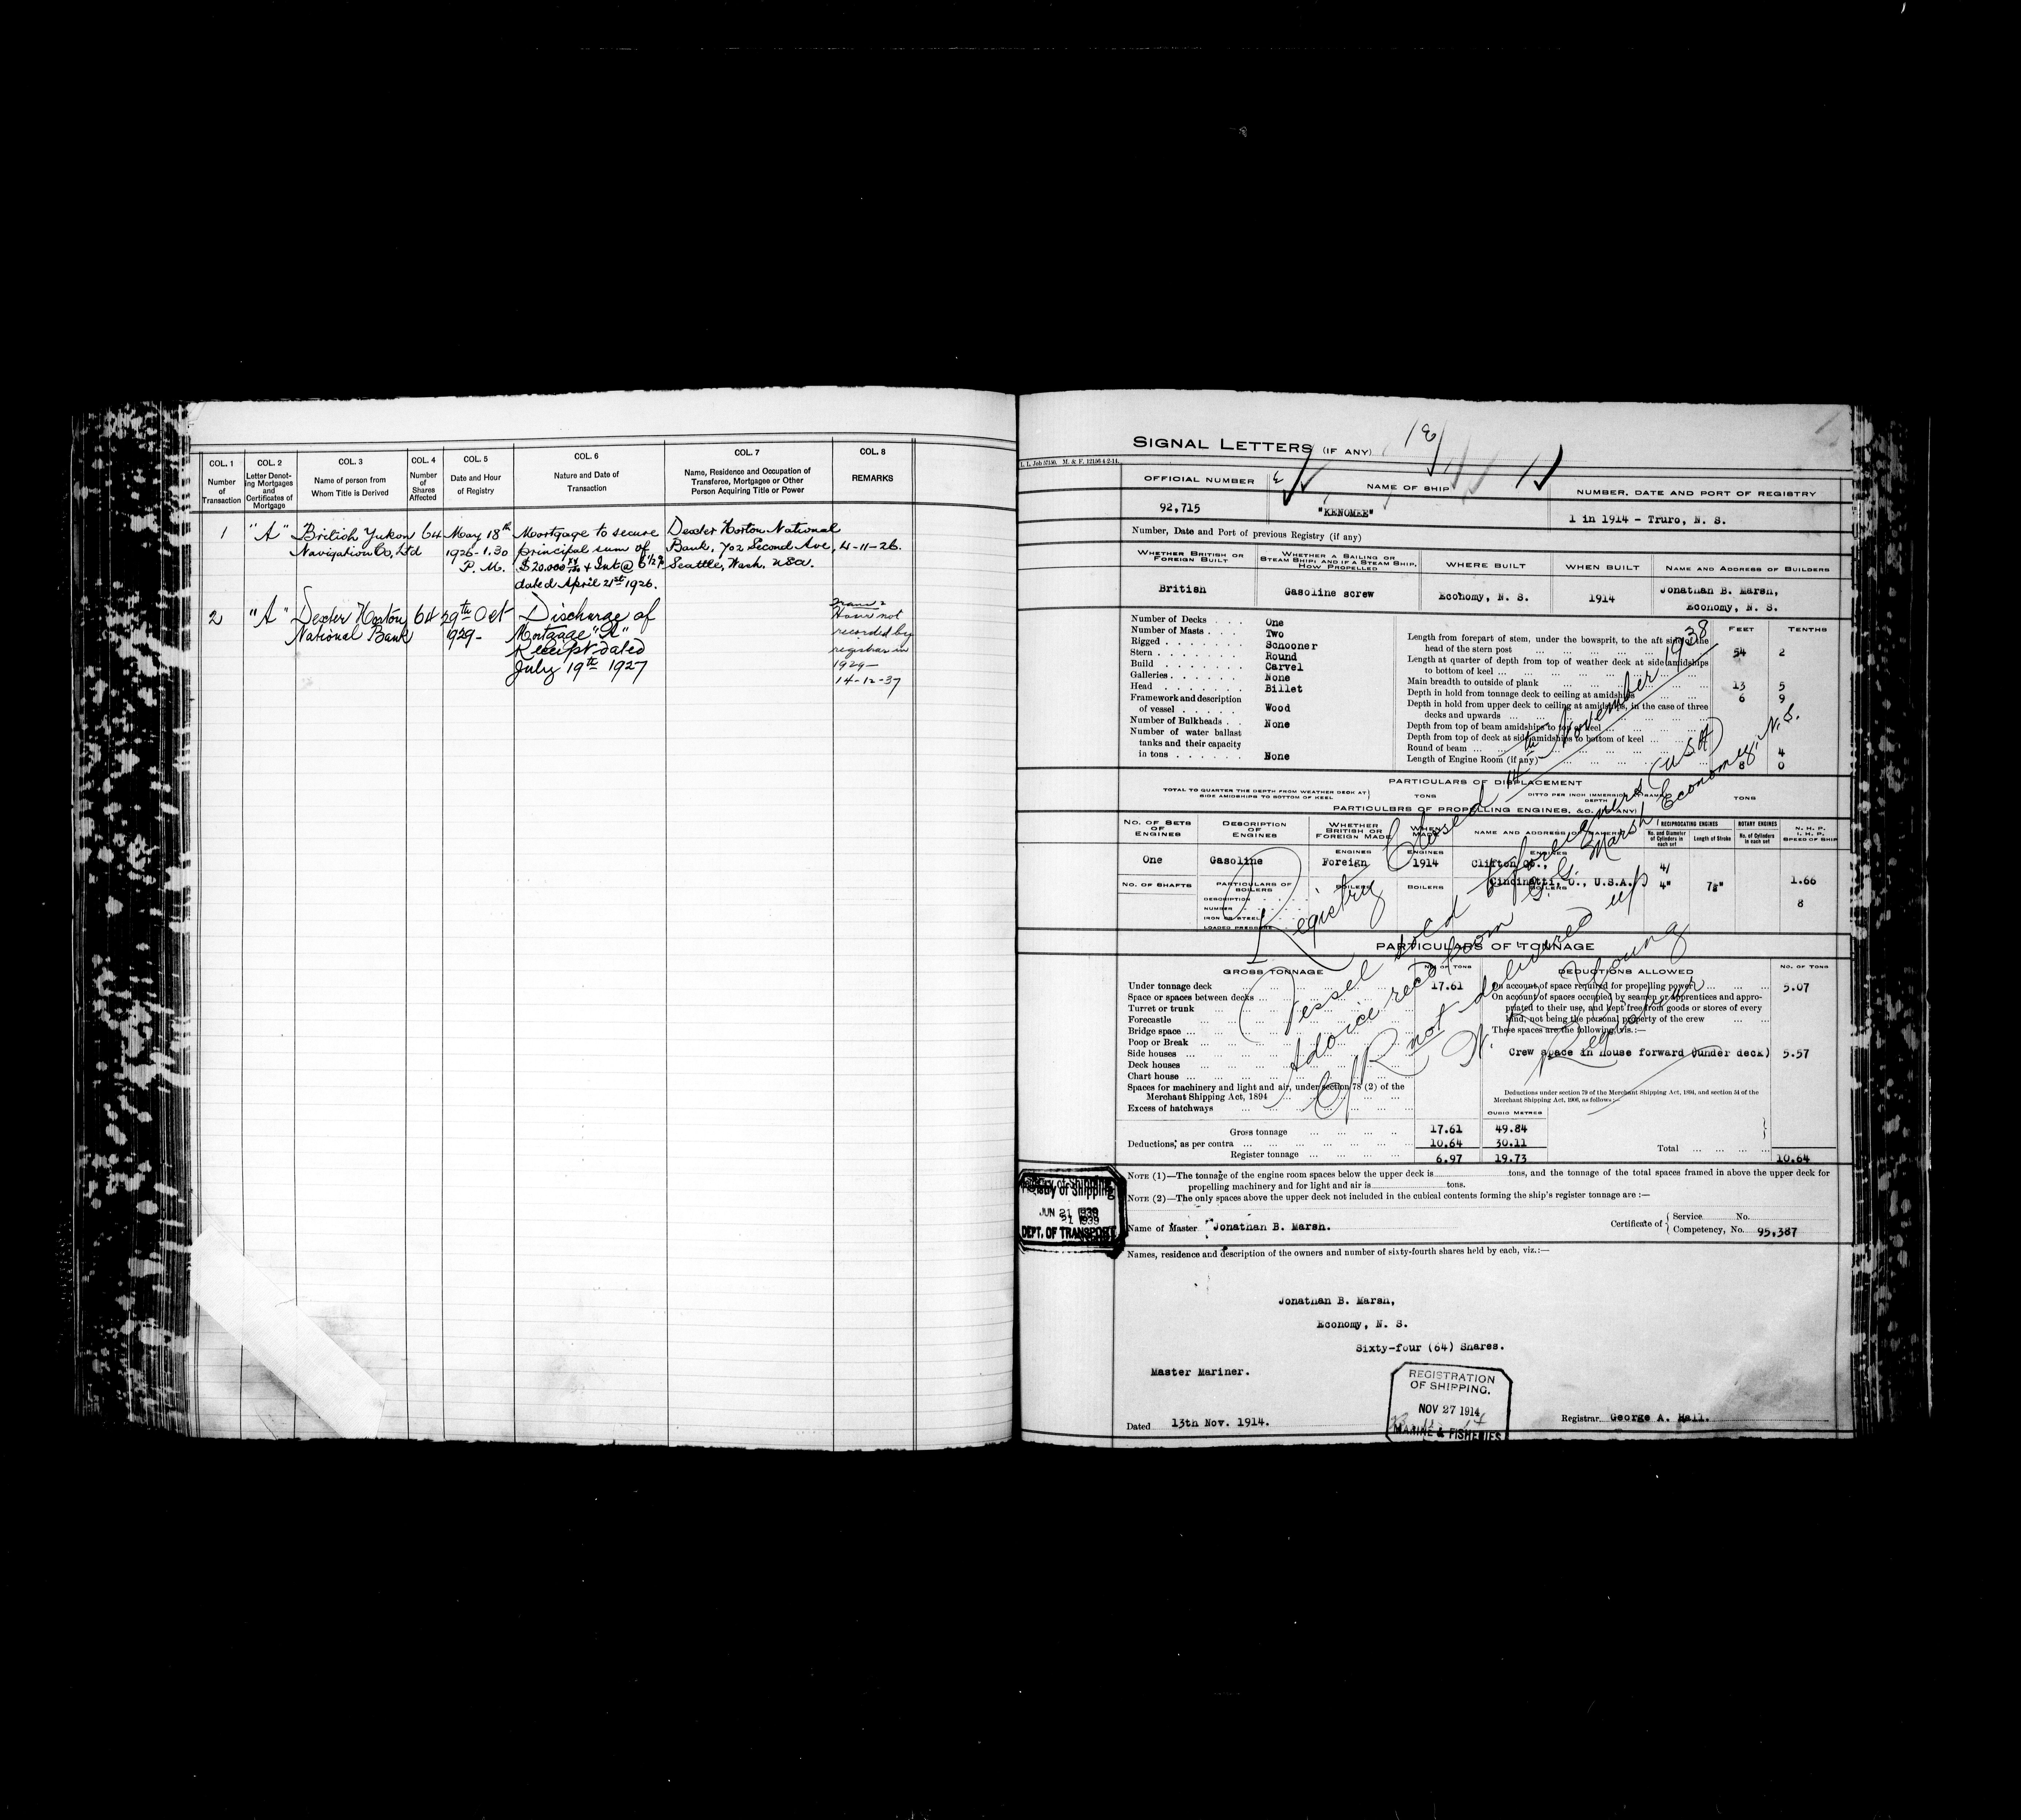 COL. 1 COL. 2 COL. 3 COL. 4 COL. 5 COL. 6 COL. 7 COL. 8
Number of Transaction
Letter Denoting Mortgages and Certificates of Mortgage
Name of person from Whom Title is Derived
Number of Shares Affected
Date and Hour of Registry
Nature and Date of Transaction
Name, Residence and Occupation of Transferee, Mortgagee or Other Person Acquiring Title or Power
REMARKS
1 "A" British Yukon 64 May 18th Mortgage to secure Dexter Horton National
Navigation Co, Ltd 1926-1.30 principal sum of Bank, 702 Second Ave, 4-11-26.
P. M. $20.000 xx/100 & Int @ 6 1/2 % Seattle, Wash. USA.
dated April 21st 1926.
2 "A" Dexter Horton 64 29th Oct Discharge of
National Bank 1929- Mortgage "A"
Receipt dated
July 19th 1927
Hour not
recorded by
registrar in
1929-
14-12-37
SIGNAL LETTERS (IF ANY)
L. I. Job 57150. M. & F. 12156 4-2-14.
OFFICIAL NUMBER NAME OF SHIP NUMBER, DATE AND PORT OF REGISTRY
92,715 "KENOMEE" 1 in 1914 - Truro, N. S.
Number, Date and Port of previous Registry (if any)
WHETHER BRITISH OR FOREIGN BUILT
WHETHER A SAILING OR STEAM SHIP; AND IF A STEAM SHIP, HOW PROPELLED
WHERE BUILT WHEN BUILT NAME AND ADDRESS OF BUILDERS
British Gasoline screw Economy, N. S. 1914 Jonathan B. Marsh,
Economy, N. S.
Number of Decks One
Number of Masts Two
Rigged Schooner
Stern Round
Build Carvel
Galleries None
Head Billet
Framework and description of vessel Wood
Number of Bulkheads None
Number of water ballast tanks and their capacity in tons None
FEET TENTHS
Length from forepart of stem, under the bowsprit, to the aft side of the head of the stern post 54 2
Length at quarter of depth from top of weather deck at side amidships to bottom of keel
Main breadth to outside of plank 13 5
Depth in hold from tonnage deck to ceiling at amidships 6 9
Depth in hold from upper deck to ceiling at amidships, in the case of three decks and upwards
Depth from top of beam amidships to top of keel
Depth from top of deck at side amidships to bottom of keel
Round of beam 4
Length of Engine Room (if any) 8 0
PARTICULARS OF DISPLACEMENT
TOTAL TO QUARTER THE DEPTH FROM WEATHER DECK AT SIDE AMIDSHIPS TO BOTTOM OF KEEL TONS DITTO PER INCH IMMERSION AT SAME DEPTH TONS
PARTICULARS OF PROPELLING ENGINES, &C. (IF ANY)
NO. OF SETS OF ENGINES
DESCRIPTION OF ENGINES
WHETHER BRITISH OR FOREIGN MADE
WHEN MADE
NAME AND ADDRESS OF MAKERS
RECIPROCATING ENGINES ROTARY ENGINES
No. and Diameter of Cylinders in each set
Length of Stroke
No. of Cylinders in each set
N. H. P.
I. H. P.
SPEED OF SHIP
ENGINES ENGINES ENGINES
One Gasoline Foreign 1914 Clifton Co., 4/
Cincinatti, O., U.S.A. 4" 1.66
8
NO. OF SHAFTS PARTICULARS OF BOILERS BOILERS BOILERS BOILERS
DESCRIPTION
NUMBER
IRON OR STEEL
LOADED PRESSURE
Registry Closed 14th November 1938
Vessel sold to foreigners (USA)
Advice recd from C. G. Marsh Economy, N. S.
C/R not delivered up
Young
Registrar
PARTICULARS OF TONNAGE
GROSS TONNAGE NO. OF TONS DEDUCTIONS ALLOWED NO. OF TONS
Under tonnage deck 17.61
Space or spaces between decks
Turret or trunk
Forecastle
Bridge space
Poop or Break
Side houses
Deck houses
Chart house
Spaces for machinery and light and air, under section 78 (2) of the
Merchant Shipping Act, 1894
Excess of hatchways
On account of space required for propelling power 5.07
On account of spaces occupied by seamen or apprentices and appro-
priated to their use, and kept free from goods or stores of every
kind, not being the personal property of the crew
These spaces are the following, viz.:—
Crew space in house forward (under deck) 5.57
Deductions under section 79 of the Merchant Shipping Act, 1894, and section 54 of the
Merchant Shipping Act, 1906, as follows:—
CUBIC METRES
Gross tonnage 17.61 49.84
Deductions, as per contra 10.64 30.11
Register tonnage 6.97 19.73
Total 10.64
NOTE (1)—The tonnage of the engine room spaces below the upper deck is tons, and the tonnage of the total spaces framed in above the upper deck for
propelling machinery and for light and air is tons.
NOTE (2)—The only spaces above the upper deck not included in the cubical contents forming the ship's register tonnage are :—
Registry of Shipping
JUN 21 1939
DEPT. OF TRANSPORT
Name of Master Jonathan B. Marsh.
Certificate of Service No.
Competency, No. 95,387
Names, residence and description of the owners and number of sixty-fourth shares held by each, viz.:—
Jonathan B. Marsh,
Economy, N. S.
Sixty-four (64) Shares.
Master Mariner.
REGISTRATION
OF SHIPPING.
NOV 27 1914
MARINE & FISHERIES
Dated 13th Nov. 1914.
Registrar George A. Hall.